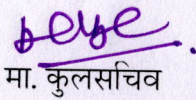 मा. कुलसचिव